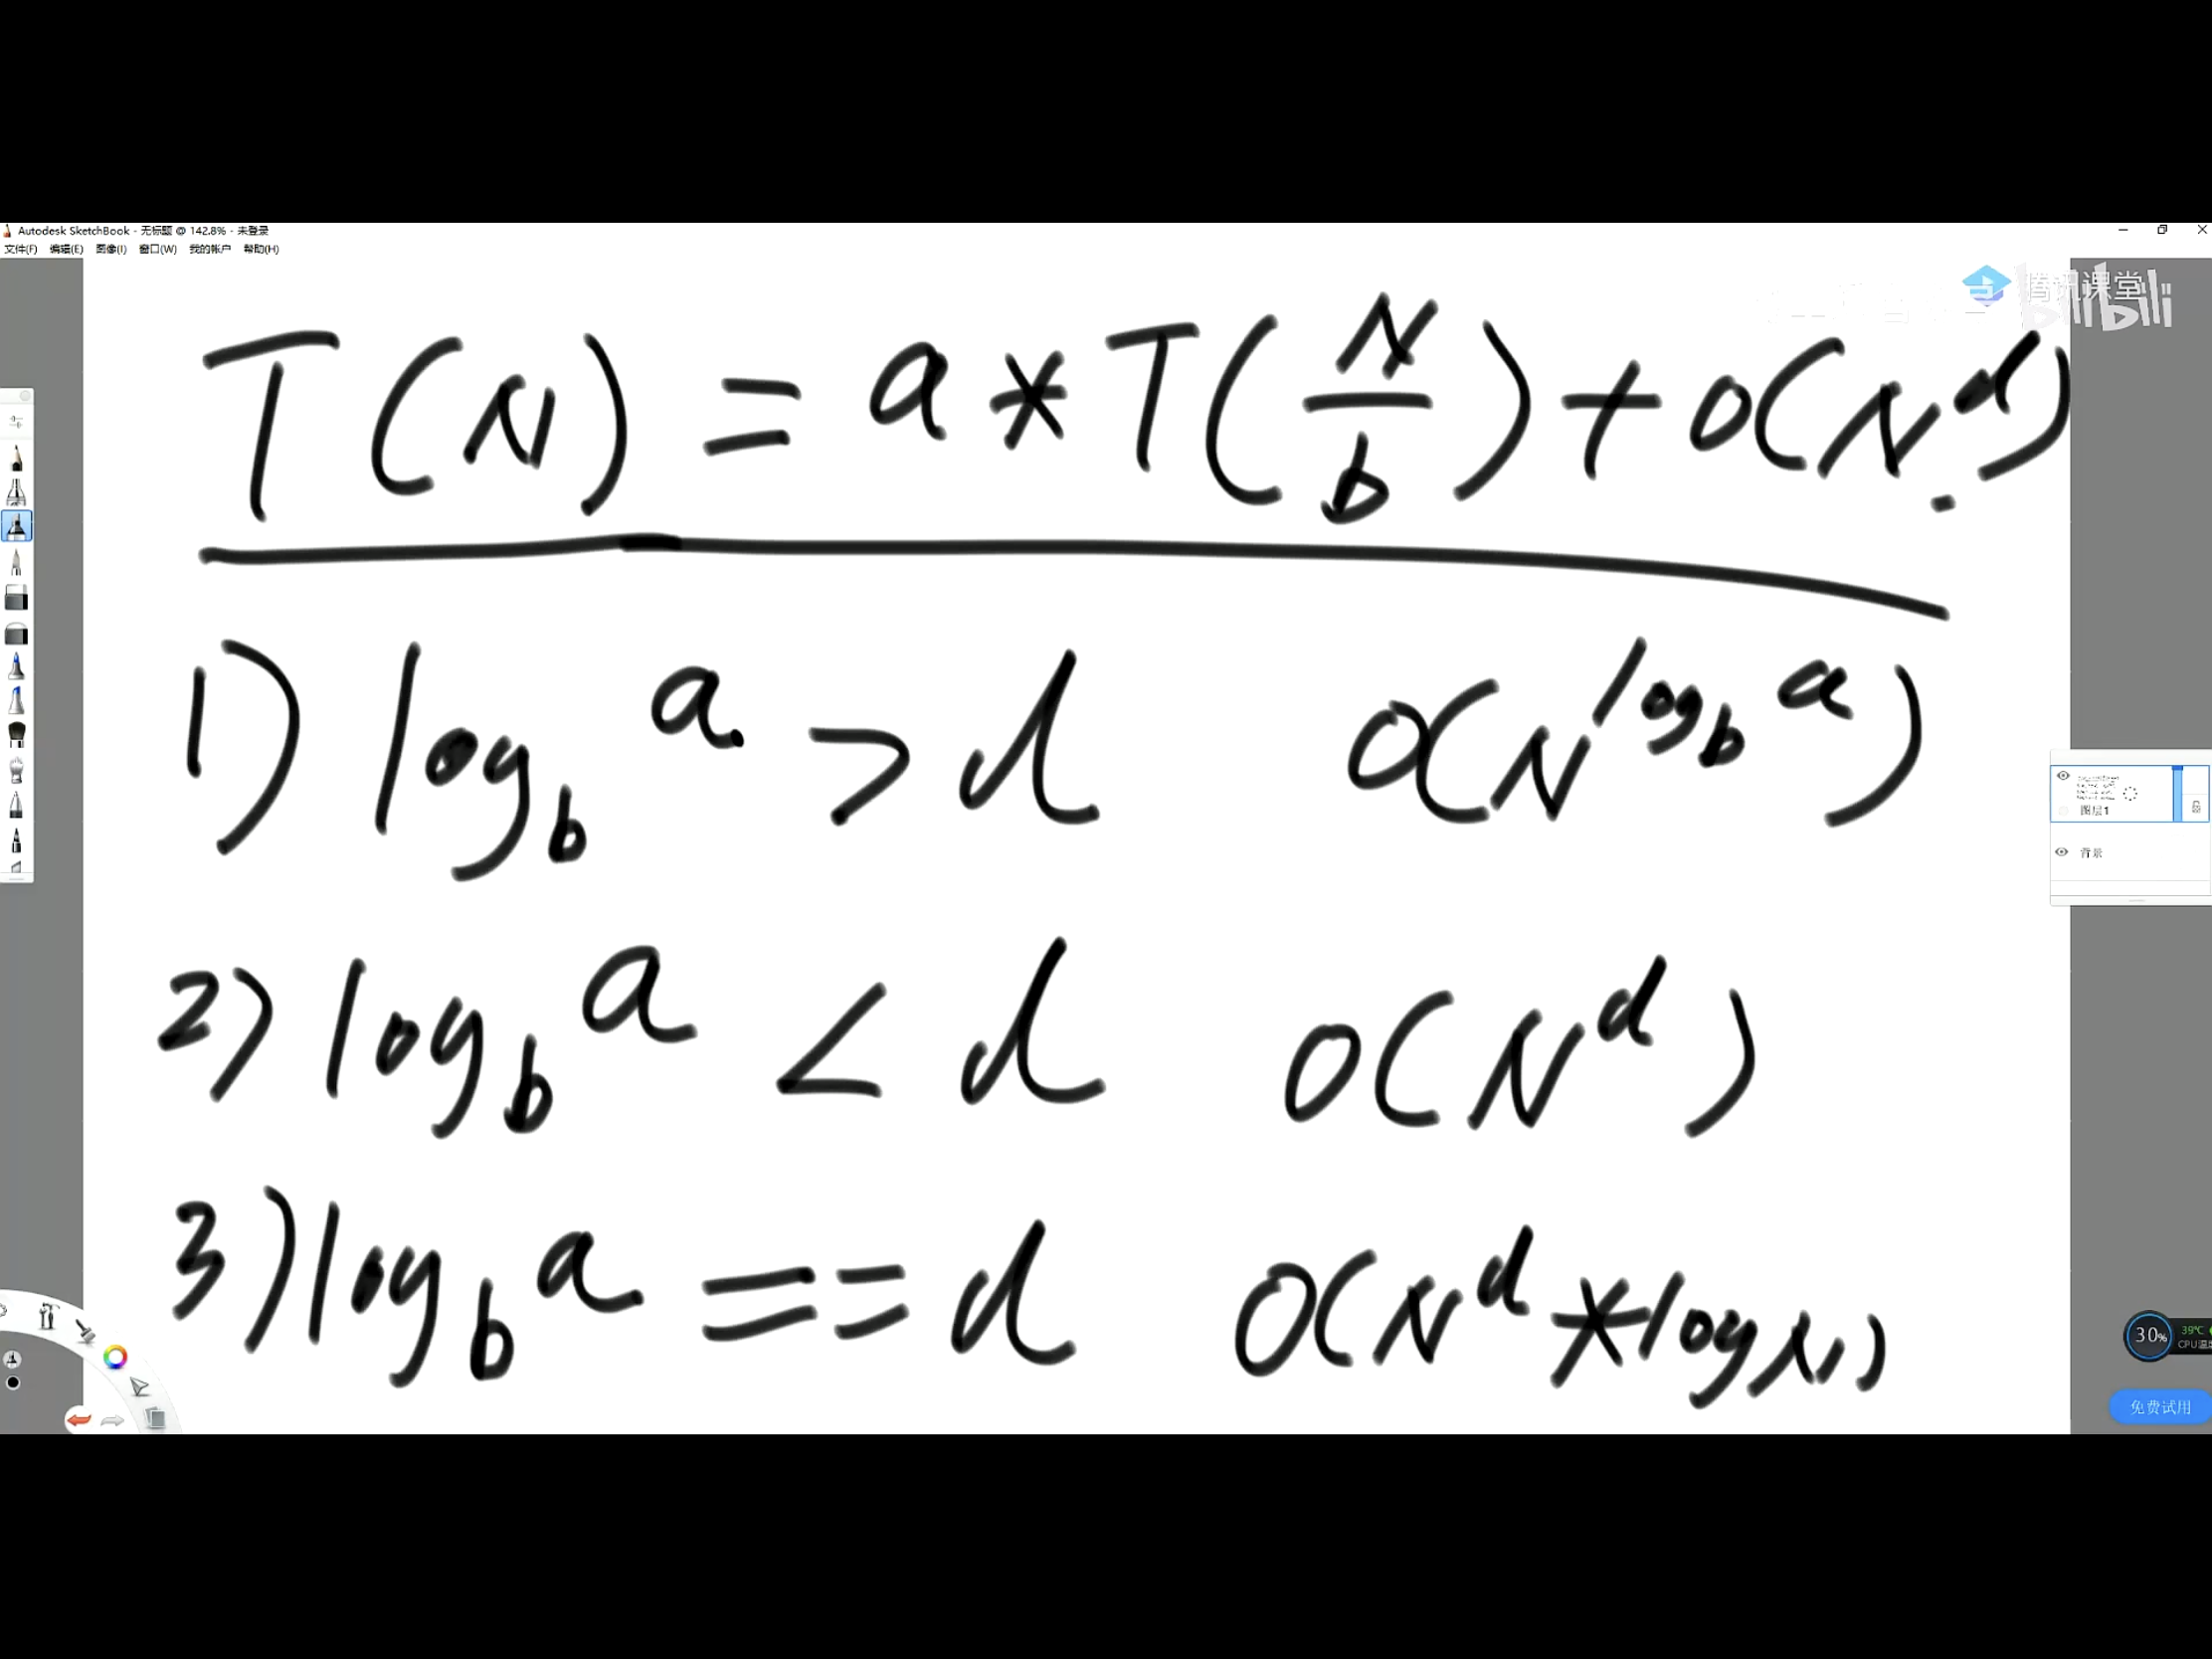 Autodesk SketchBook - 无标题 @ 142.8% - 未登录
文件(F) 编辑(E) 图像(I) 窗口(W) 我的帐户 帮助(H)
腾讯课堂
bilibili
T(N) = a * T(N/b) + O(N^d)
1) log_b a > d O(N^(log_b a))
2) log_b a < d O(N^d)
3) log_b a == d O(N^d * log N)
图层1
背景
30%
39℃
免费试用